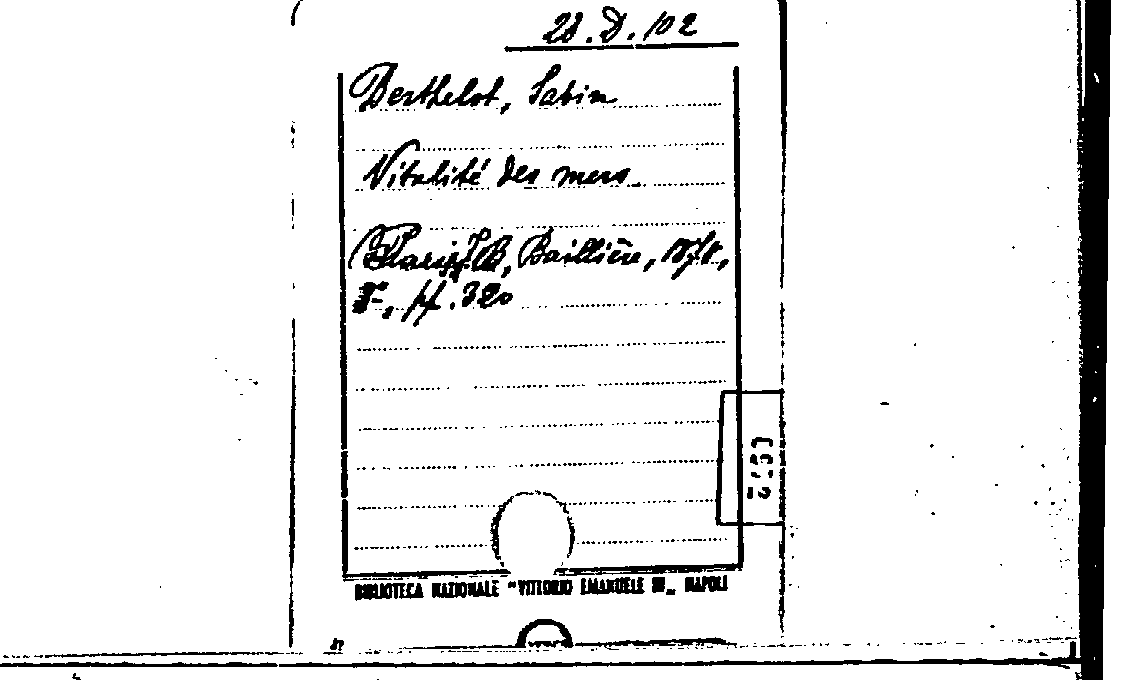 28.D.102
Berthelot, Sabin
Vitalité des mers.
Paris, J.B. Baillière, 1878,
8°, pp. 320
BIBLIOTECA NAZIONALE "VITTORIO EMANUELE III„ NAPOLI